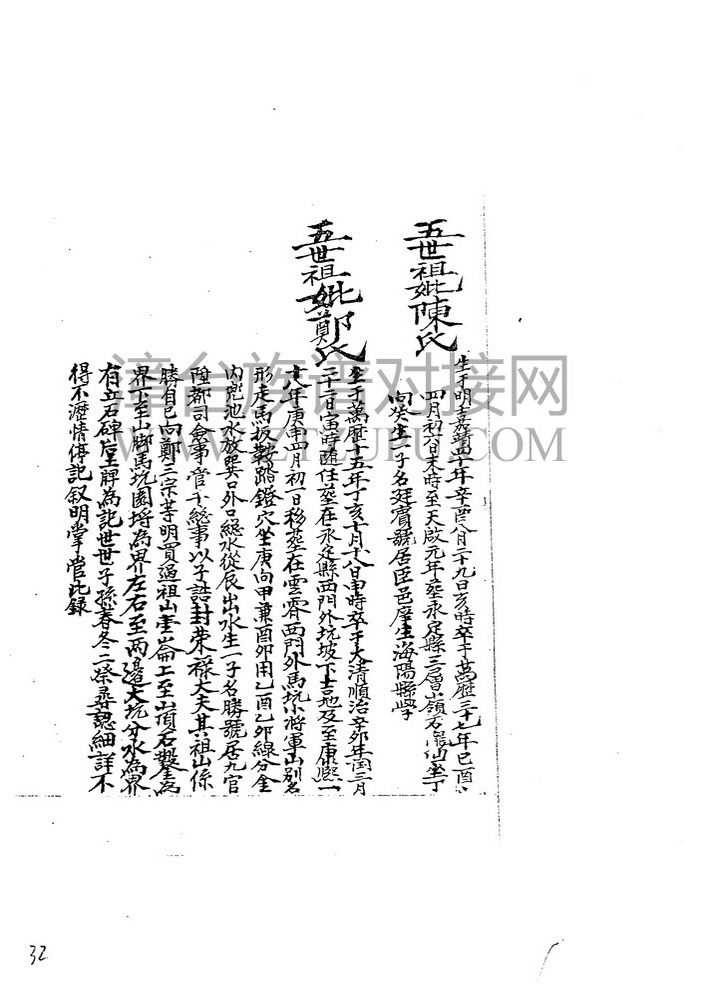 五世祖妣陳氏
生于明嘉靖四十年辛酉八月二十九日亥時卒于萬歷三十七年己酉
四月初六日未時至天啟元年塟永定縣三層嶺石 仙坐丁
向癸生一子名廷賓號居臣邑庠生海陽縣學
五世祖妣鄭氏
生于萬歷十五年丁亥十月十八日申時卒于大清順治辛卯年閏三月
二十二日寅時随任塟在永定縣西門外坑坡下吉地及至康熙一
十八年庚申四月初一日移塟在雲霄西門外馬坑小將軍山別名
形走馬扳鞍踏鐙穴坐庚向甲兼酉卯用乙酉乙卯線分金
内兜池水放巽口外口總水從辰出水生一子名勝號居九官
陞都司僉事管千總事以子誥封榮祿大夫其祖山係
勝自己向鄭三宗等明買過祖山壹崙上至山頂石 為
界下至山脚馬坑園塆為界左右至两邊大坑分水為界
有立石碑 為記世世子孫春冬二祭尋認細詳不
得不瀝情傳記叙明掌管此錄
漳台族谱对接网
WWW.ZTZUPU.COM
32